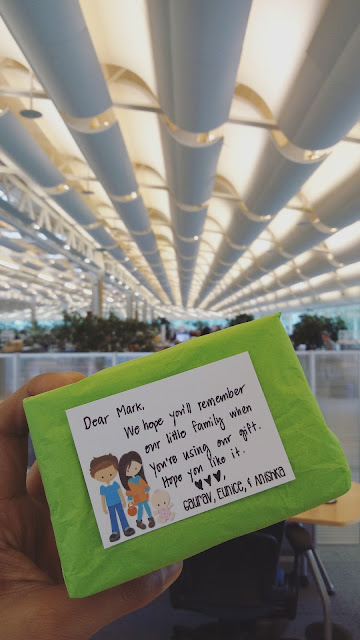 Dear Mark,
We hope you'll remember
our little family when
you're using our gift.
Hope you like it.
♥♥♥
Gaurav, Eunice, & Anishka